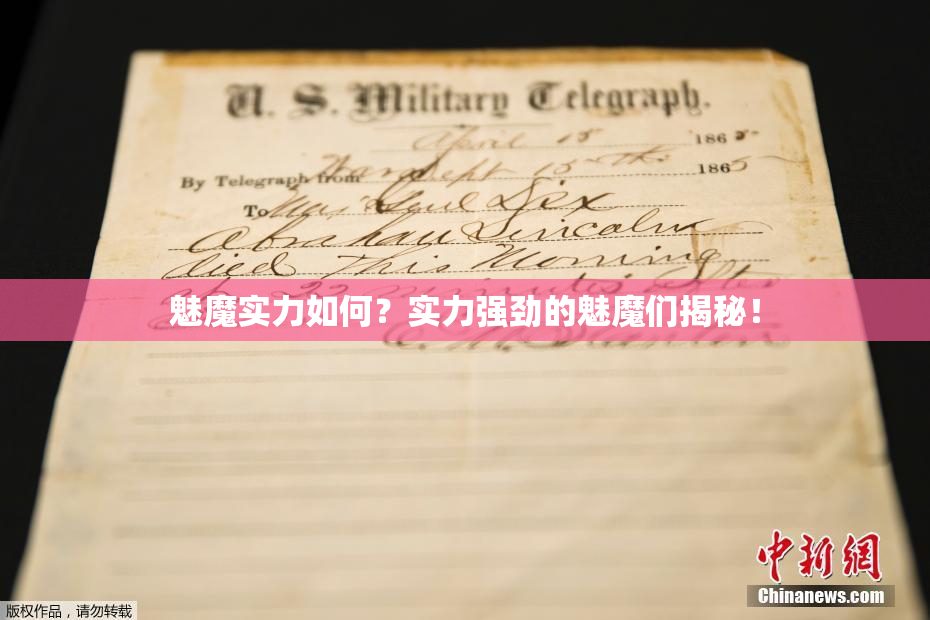 U. S. Military Telegraph.
April 15 1865
By Telegraph from War Dept 15th 1865
To Maj Genl Dix
Abraham Lincoln
died This Morning
at 22 minutes after
魅魔实力如何？实力强劲的魅魔们揭秘！
E. M. Stanton
中新网
Chinanews.com
版权作品，请勿转载